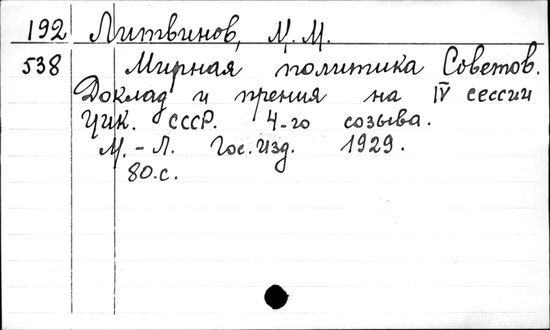 192 Литвинов, М. М.
538 Мирная политика Советов.
Доклад и прения на IV сессии
ЦИК. СССР. 4-го созыва.
М.-Л. Гос.Изд. 1929.
80.с.